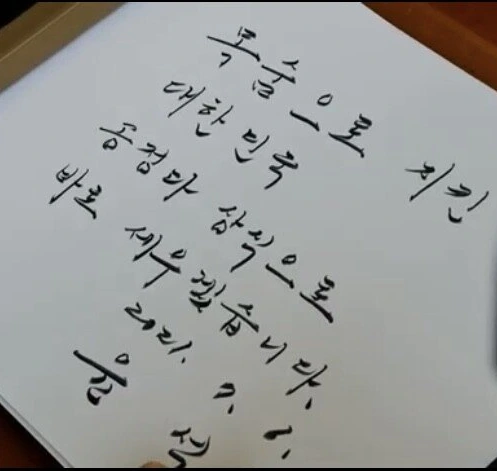 목숨으로 지킨
대한민국
공정과 상식으로
바로 세우겠습니다.
2021. 7. 1.
윤 석